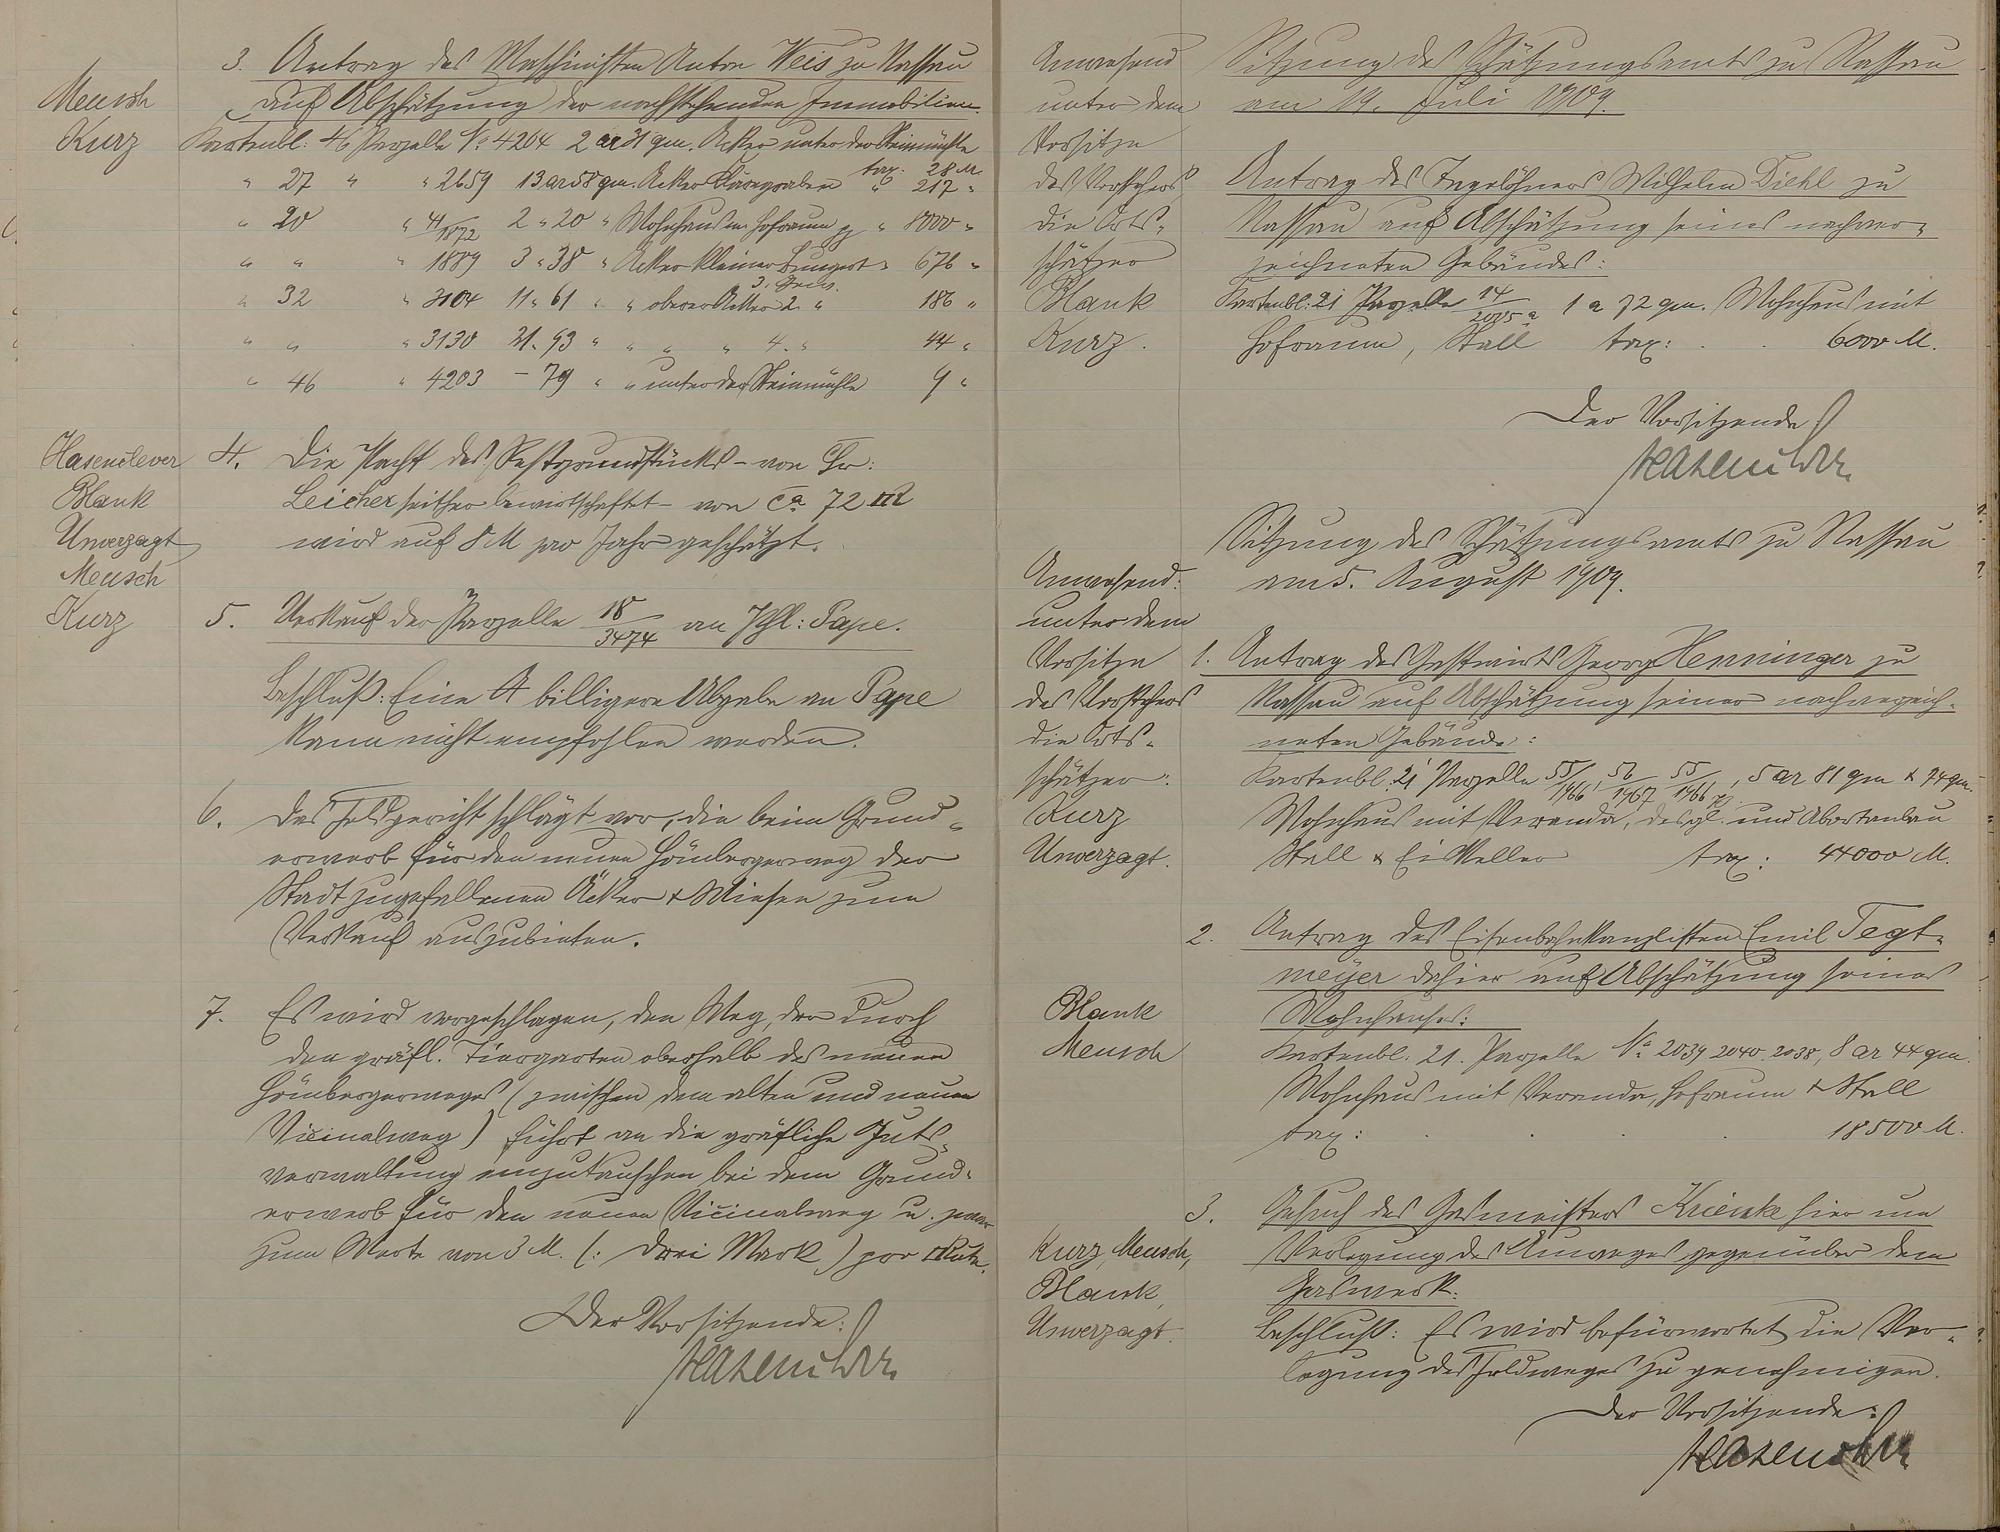 Meusch
Kurz
3. Antrag des Maschinisten Anton Weis zu Nassau
auf Abschätzung der nachstehenden Immobilien.
Kartenbl: 46 Parzelle No 4204 2 ar 31 qm. Acker unter der Steinmühle
tax: 28 M.
" 27 " " 2659 13 ar 58 qm. Acker " 217 "
" 20 " 41/1872 2 " 20 " Wohnhaus m. Hofraum " 8000 "
" " " 1889 3 " 38 " Acker kleiner Bungert " 676 "
" 32 " 3104 11 " 61 " " oberer Acker 2. " 186 "
3. Gew.
" " " 3130 21 " 93 " " " " 4. " 44 "
" 46 " 4203 – 79 " " unter der Steinmühle 9 "
Hasenclever
Blank
Unverzagt
Meusch
Kurz
4. Die Pacht des Restgrundstücks – von Chr:
Leicher seither bewirtschaftet – von ca 72
wird auf 8 M pro Jahr geschätzt.
5. Verkauf der Parzelle 18/3474 an Pape.
Beschluß: Eine billigere Abgabe an Pape
kann nicht empfohlen werden.
6. Das Feldgericht schlägt vor, die beim Grund-
erwerb für den neuen Hömbergerweg der
Stadt zugefallenen Äcker & Wiesen zum
Verkauf auszubieten.
7. Es wird vorgeschlagen, den Weg, der durch
den gräfl. Tiergarten oberhalb des neuen
Hömbergerweges (zwischen dem alten und neuen
Vicinalweg) führt an die gräfliche Guts-
verwaltung einzutauschen bei dem Grund-
erwerb für den neuen Vicinalweg u. zwar
zum Werte von 3 M. (: drei Mark) pro Rute.
Der Vorsitzende:
Hasenclever
Anwesend
unter dem
Vorsitze
des Vorstehers
die Orts-
schätzer
Blank
Kurz.
Sitzung des Schätzungsamts zu Nassau
am 19. Juli 1909.
Antrag des Tagelöhners Wilhelm Diehl zu
Nassau auf Abschätzung seines nachver-
zeichneten Gebäudes:
Kartenbl: 21 Parzelle 14/2005 a 1 a 72 qm. Wohnhaus mit
Hofraum, Stall tax: . . 6000 M.
Der Vorsitzende
Hasenclever
Sitzung des Schätzungsamts zu Nassau
am 5. August 1909.
Anwesend:
unter dem
Vorsitze
des Vorstehers
die Orts-
schätzer:
Kurz
Unverzagt.
1. Antrag des Gastwirts Georg Henninger zu
Nassau auf Abschätzung seiner nachverzeich-
neten Gebäude:
Kartenbl. 21 Parzelle 55/1966, 56/1967 55/1966, 5 ar 81 qm & 94 qm
Wohnhaus mit Veranda, desgl. und Abortanbau
Stall & Eiskeller tax: 44000 M.
Blank
Meusch
2. Antrag des Eisenbahnkanzlisten Emil Tegt-
meyer dahier auf Abschätzung seines
Wohnhauses:
Kartenbl. 21. Parzelle No 2039 2040 2038, 8 ar 44 qm.
Wohnhaus mit Veranda, Hofraum & Stall
tax: . . . 18500 M.
Kurz, Meusch,
Blank,
Unverzagt.
3. Gesuch des Gasmeisters Krienke hier um
Verlegung des Auweges gegenüber dem
Gaswerk.
Beschluß: Es wird befürwortet die Ver-
legung des Feldweges zu genehmigen.
Der Vorsitzende:
Hasenclever